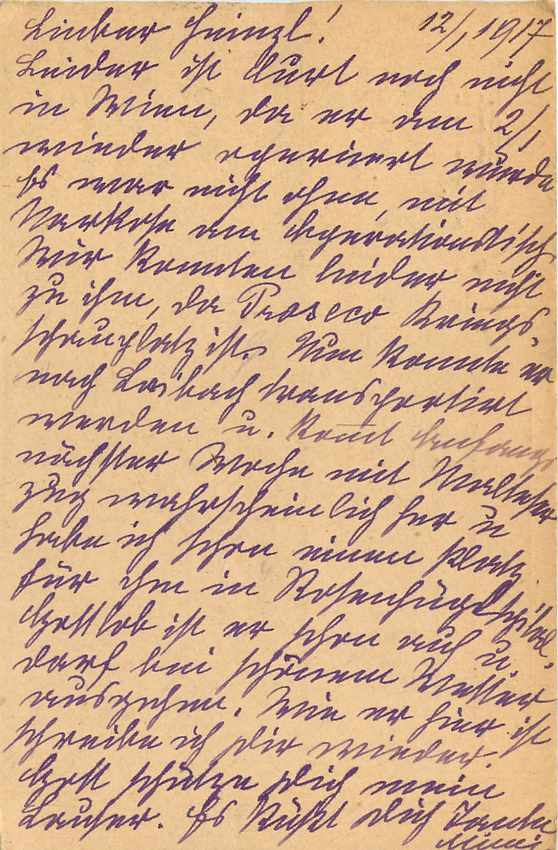 Lieber Heinzl! 12/1 1917
Leider ist Kurt noch nicht
in Wien, da er am 2/1
wieder operiert wurde
Es war nicht ohne, mit
Narkose am Operationstisch
Wir konnten leider nicht
zu ihm, da Proseco Kriegs-
schauplatz ist. Nun konnte er
nach Laibach transportirt
werden u. komt Anfangs
nächster Woche mit Malteser
zug wahrscheinlich her u
habe ich schon einen Platz
für ihn in Rosenhügelspital.
Gottlob ist er schon auf u.
darf bei schönem Wetter
ausgehen. Wie er hier ist
schreibe ich Dir wieder.
Gott schütze Dich mein
Lauser. Es küßt Dich Tante
Mimi